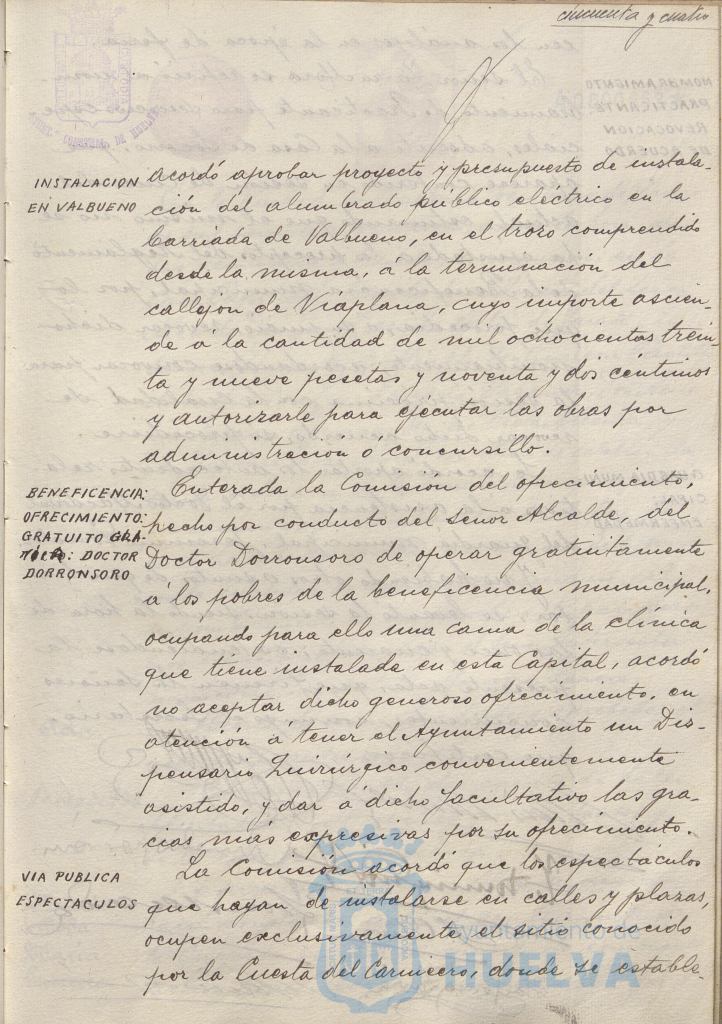 cincuenta y cuatro
AYUNT. CONSTNAL. DE HUELVA
INSTALACION
EN VALBUENO
acordó aprobar proyecto y presupuesto de instala-
ción del alumbrado público eléctrico en la
barriada de Valbueno, en el trozo comprendido
desde la misma, á la terminación del
callejon de Viaplana, cuyo importe ascien-
de á la cantidad de mil ochocientas trein-
ta y nueve pesetas y noventa y dos céntimos
y autorizarle para ejecutar las obras por
administración ó concursillo.
BENEFICENCIA:
OFRECIMIENTO:
GRATUITO GRA-
: DOCTOR
DORRONSORO
Enterada la Comisión del ofrecimiento,
hecho por conducto del señor Alcalde, del
Doctor Dorronsoro de operar gratuitamente
á los pobres de la beneficencia municipal,
ocupando para ello una cama de la clínica
que tiene instalada en esta Capital, acordó
no aceptar dicho generoso ofrecimiento, en
atención á tener el Ayuntamiento un Dis-
pensario Quirúrgico convenientemente
asistido, y dar á dicho facultativo las gra-
cias más expresivas por su ofrecimiento.
VIA PUBLICA
ESPECTACULOS
La Comisión acordó que los espectáculos
que hayan de instalarse en calles y plazas,
ocupen exclusivamente el sitio conocido
por la Cuesta del Carnicero, donde se estable-
Ayuntamiento de
HUELVA